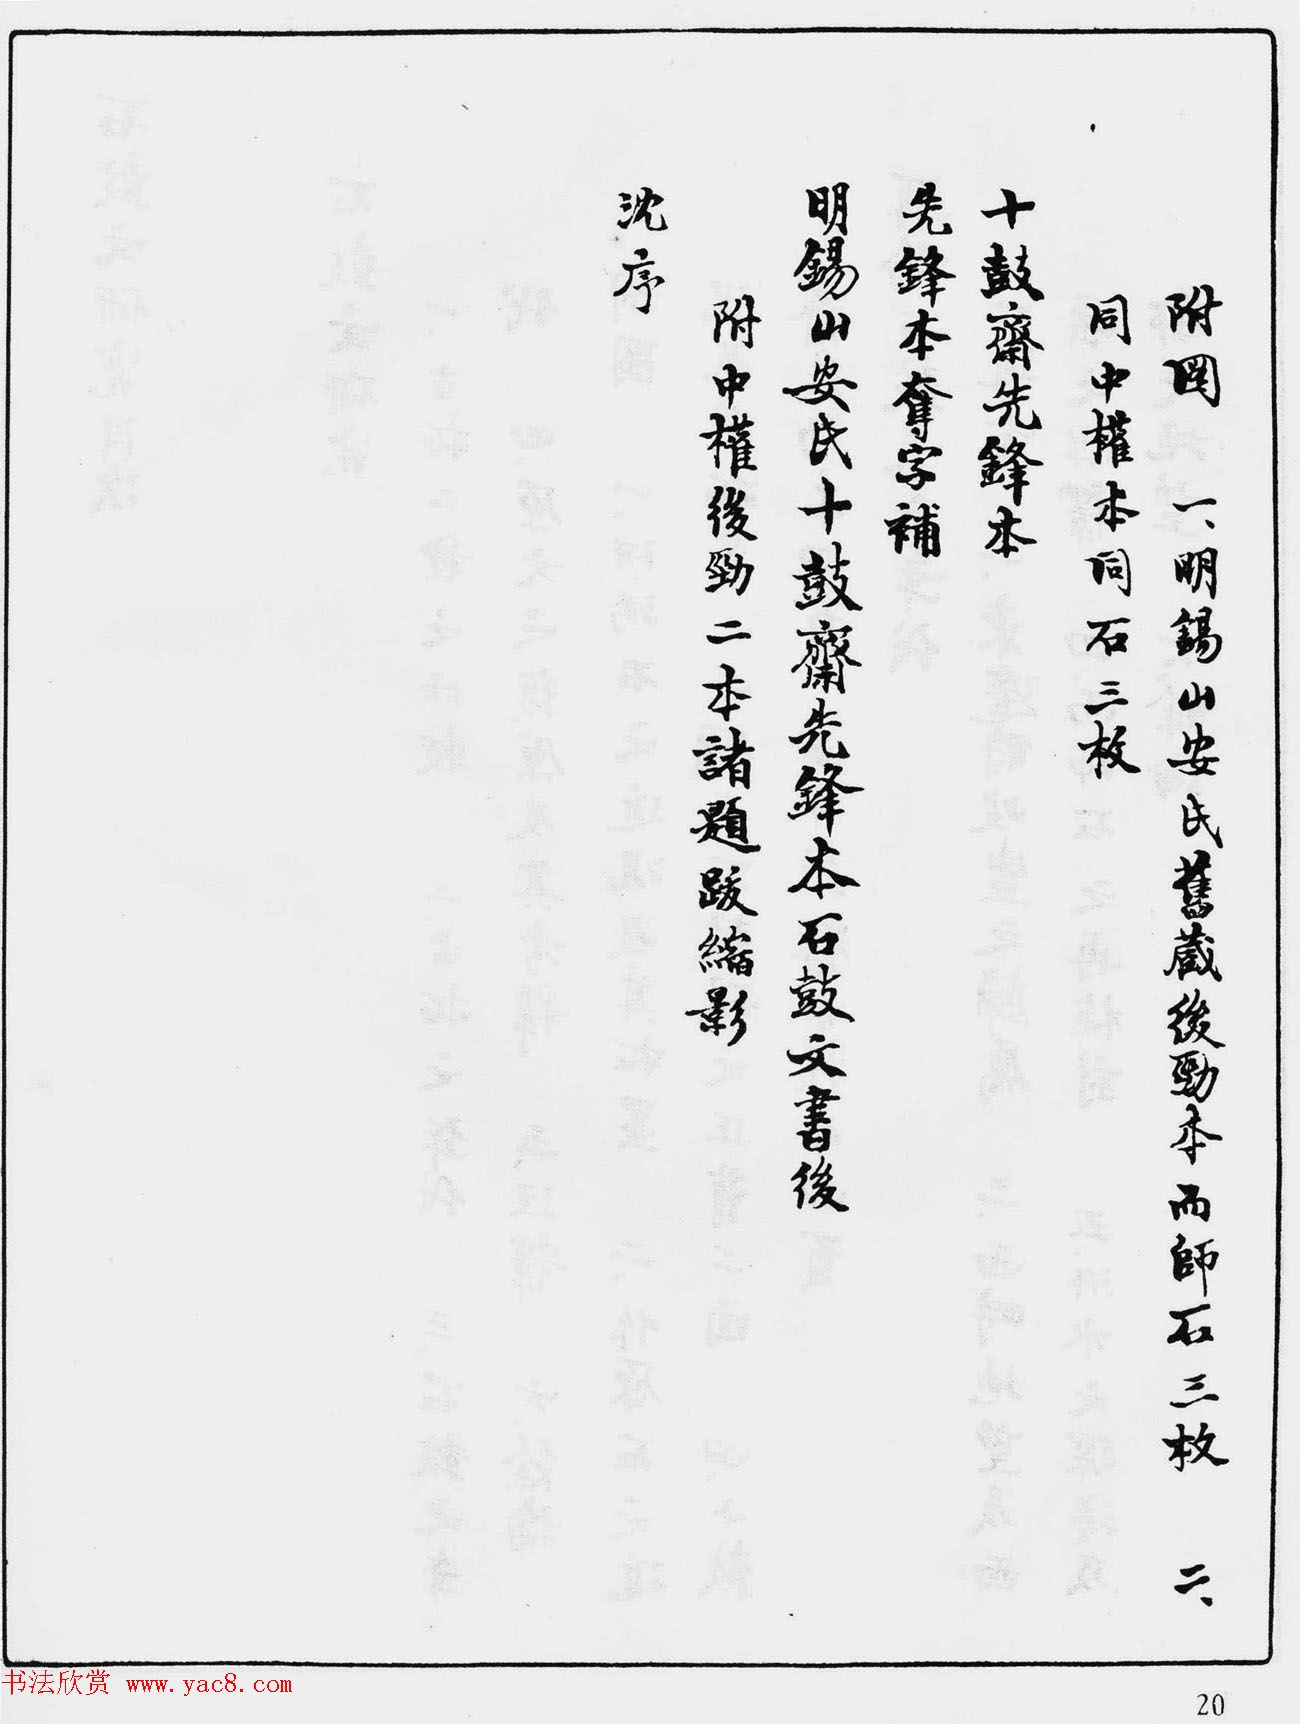 附図　一、明錫山安氏舊蔵後勁本而師石三枚　二、
同中權本同石三枚
十鼓齋先鋒本
先鋒本奪字補
明錫山安氏十鼓齋先鋒本石鼓文書後
附中權後勁二本諸題跋縮影
沈序
书法欣赏 www.yac8.com
20